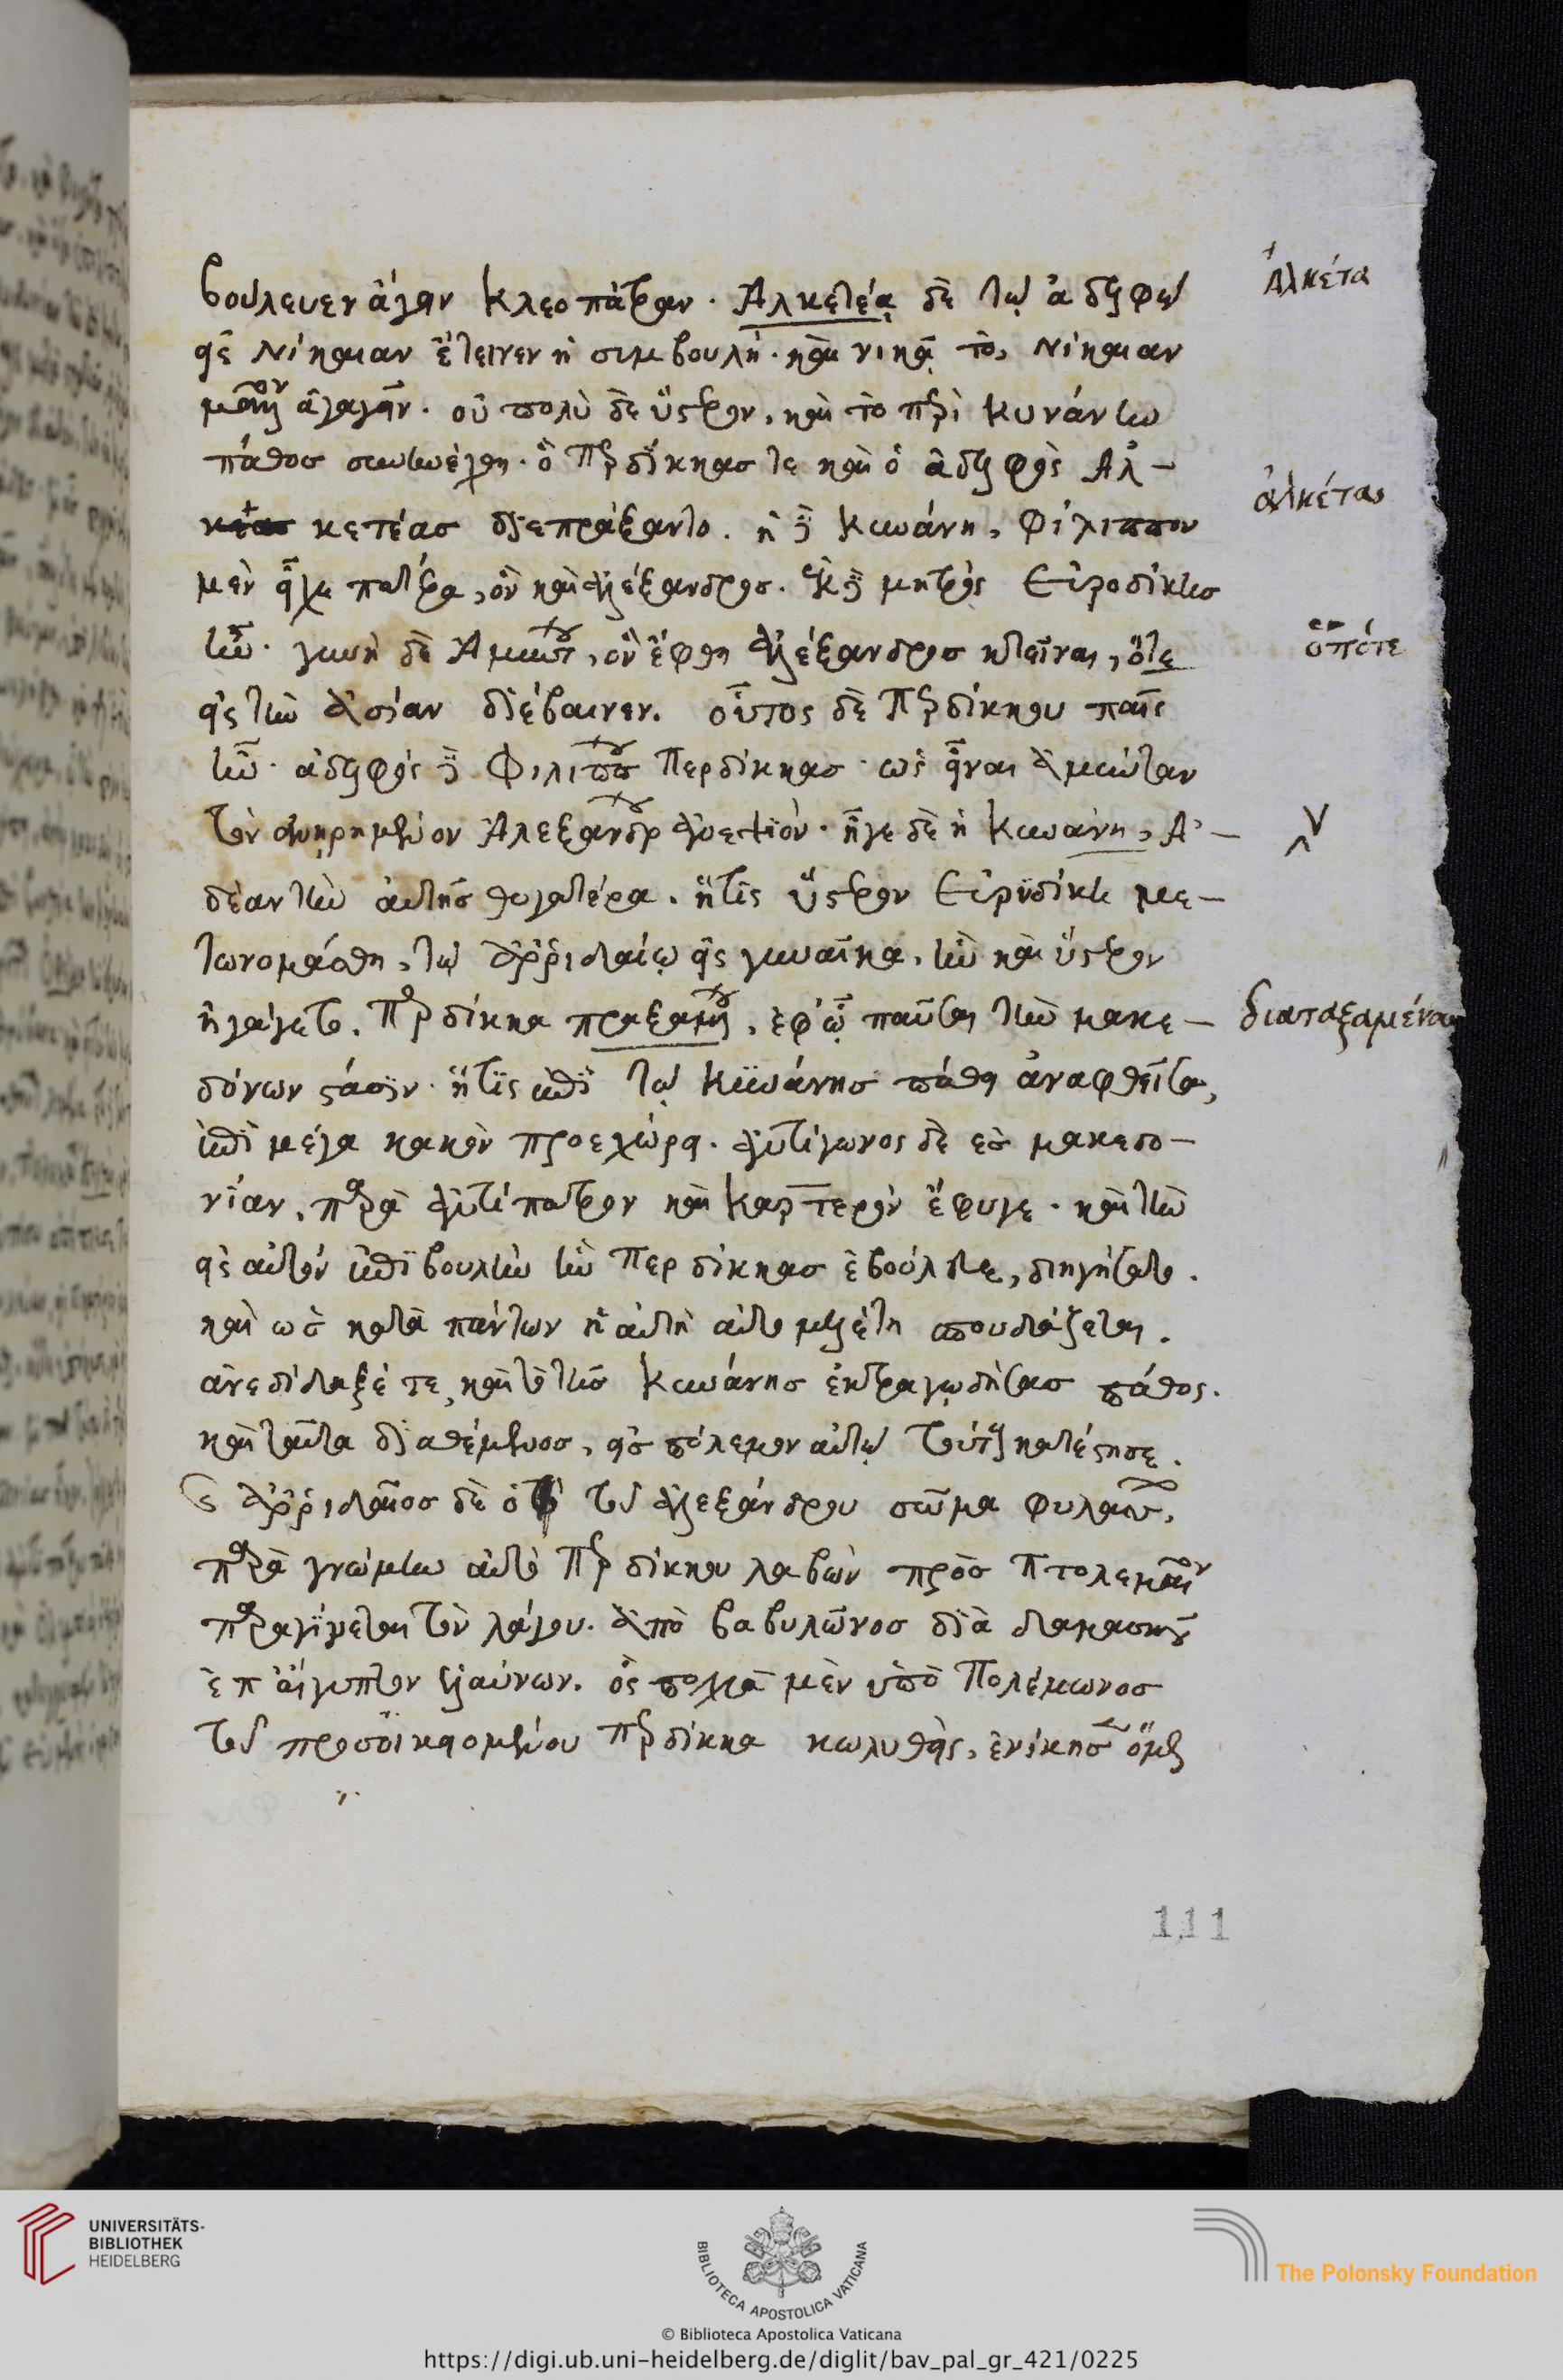 βούλευεν ἄγειν Κλεοπάτραν. Ἀλκετέᾳ δὲ τῷ ἀδελφῷ
εἰς Νίκαιαν ἔτεινεν ἡ συμβουλή. καὶ νικᾷ τὸ, Νίκαιαν
μᾶλλον ἀγαγεῖν. οὐ πολὺ δὲ ὕστερον, καὶ τὸ περὶ Κυνάνην
πάθος συνηνέχθη. ὃ Περδίκκας τε καὶ ὁ ἀδελφὸς Ἀλ-
κετέας διεπράξαντο. ἡ δὲ Κυνάνη, Φίλιππον
μὲν εἶχε πατέρα, ὃν καὶ Ἀλέξανδρος. ἐκ δὲ μητρὸς Εὐροδίκης
ἦν. γυνὴ δὲ Ἀμύντου, ὃν ἔφθη Ἀλέξανδρος κτεῖναι, ὅτε
εἰς τὴν Ἀσίαν διέβαινεν. οὗτος δὲ Περδίκκου παῖς
ἦν. ἀδελφὸς δὲ Φιλίππου Περδίκκας. ὡς εἶναι Ἀμύνταν
τὸν ἀνῃρημένον Ἀλεξάνδρου ἀνεψιόν. ἦγε δὲ ἡ Κυνάνη, Ἀ-
δέαν τὴν αὐτῆς θυγατέρα. ἥτις ὕστερον Εὐρυδίκη με-
τωνομάσθη, τῷ Ἀρριδαίῳ εἰς γυναῖκα, ἣν καὶ ὕστερον
ἠγάγετο. Περδίκκα πραξαμένου, ἐφ' ᾧ παῦσαι τὴν μακε-
δόνων στάσιν. ἥτις ἐπὶ τῷ Κυνάνης πάθει ἀναφθεῖσα,
ἐπὶ μέγα κακὸν προεχώρει. Ἀντίγονος δὲ ἐς μακεδο-
νίαν, παρὰ Ἀντίπατρον καὶ Καρτερὸν ἔφυγε. καὶ τὴν
εἰς αὐτὸν ἐπιβουλὴν ἣν Περδίκκας ἐβούλετο, διηγήσατο.
καὶ ὡς κατὰ πάντων ἡ αὐτὴ αὐτῷ μελέτη σπουδάζεται.
ἀνεδίδαξέ τε καὶ τὸ τῆς Κυνάνης ἐκτραγῳδήσας πάθος.
καὶ ταῦτα διαθέμενος, εἰς πόλεμον αὐτῷ τούτους κατέστησε.
Ἀρριδαῖος δὲ ὁ τὸ τοῦ Ἀλεξάνδρου σῶμα φυλάττων,
παρὰ γνώμην αὐτὸ Περδίκκου λαβὼν πρὸς Πτολεμαῖον
παραγίνεται τὸν λάγου. ἀπὸ βαβυλῶνος διὰ δαμασκοῦ
ἐπ' αἴγυπτον ἐλαύνων. ὃς πολλὰ μὲν ὑπὸ Πολέμωνος
τοῦ προσοικειομένου Περδίκκα κωλυθεὶς, ἐνίκησεν ὅμως
Ἀλκέτα
ἀλκέτας
ὁπότε
διαταξαμένου
111
UNIVERSITÄTS-
BIBLIOTHEK
HEIDELBERG
BIBLIOTECA APOSTOLICA VATICANA
The Polonsky Foundation
© Biblioteca Apostolica Vaticana
https://digi.ub.uni-heidelberg.de/diglit/bav_pal_gr_421/0225